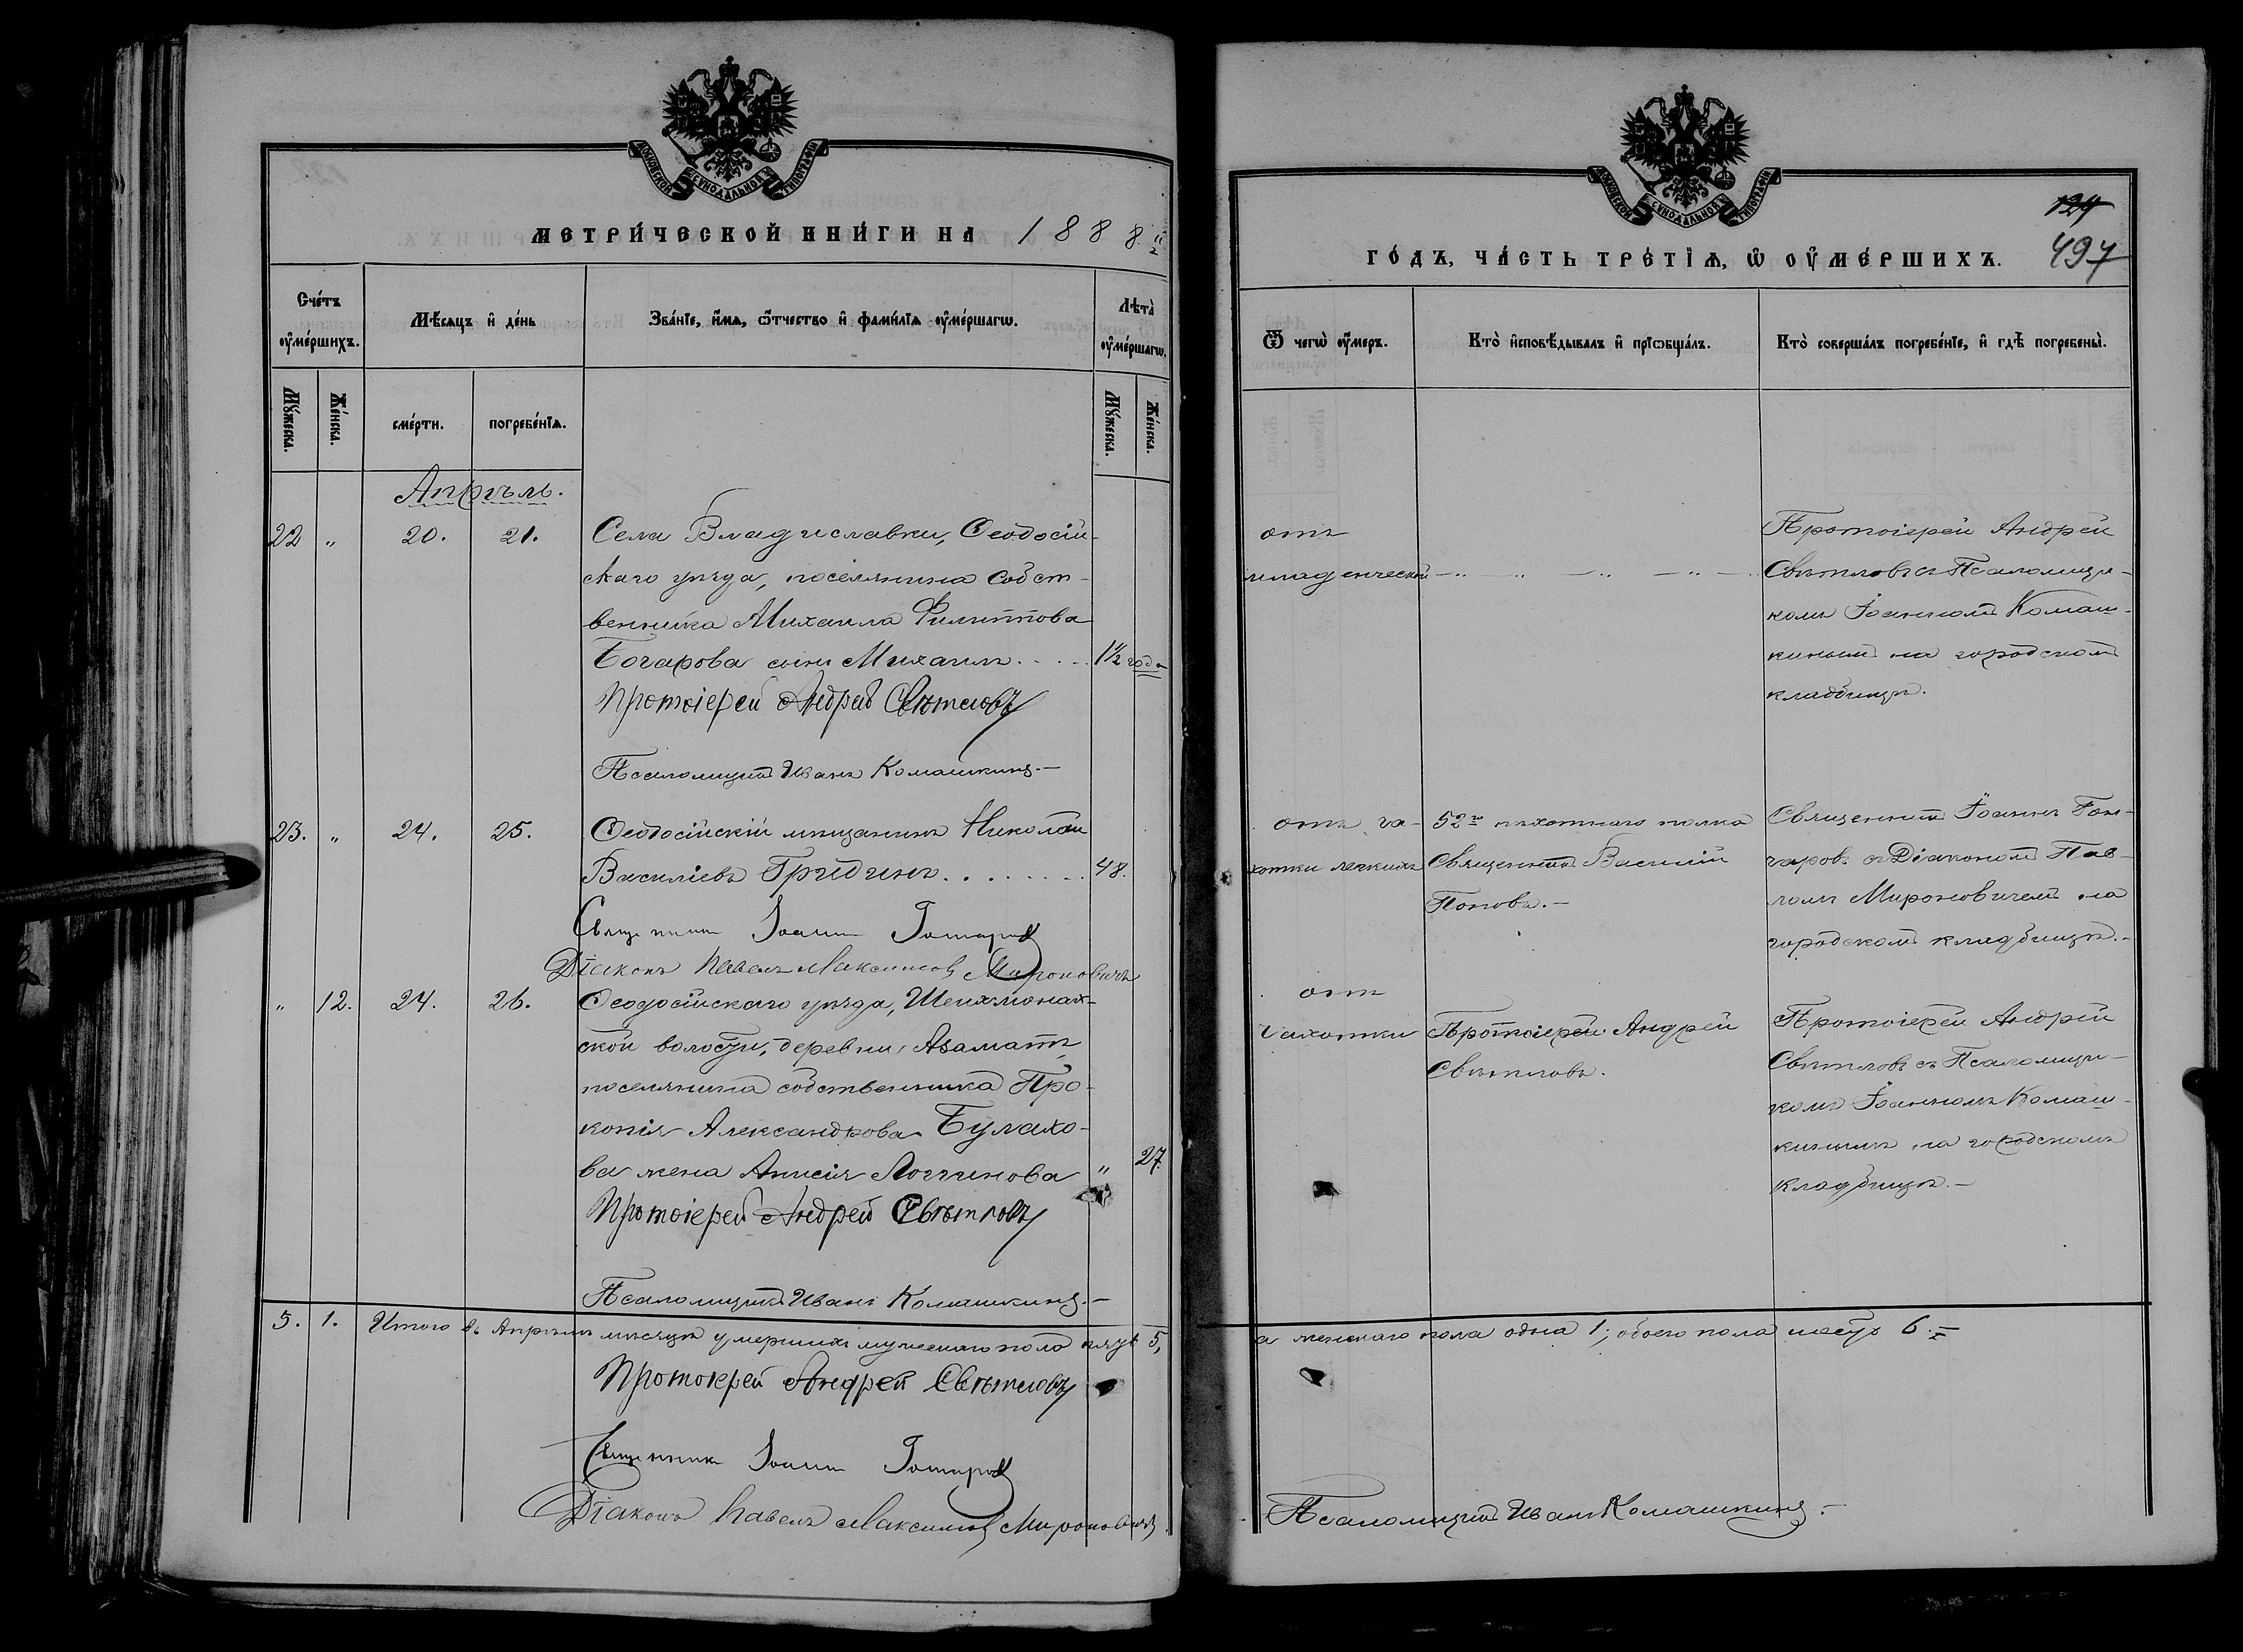 МОСКОВСКОЙ СУНОДАЛЬНОЙ ТИПОГРАФІИ
МЕТРИ́ЧЕСКОЙ КНИ́ГИ НА 1888
Сче́тъ ᲂу҆ме́ршихъ.
Мѣ́сѧцъ и҆ де́нь
Зва́нїе, и҆́мѧ, ѻ҆́тчество и҆ фами́лїѧ ᲂу҆ме́ршагѡ.
Лѣта̀ ᲂу҆ме́ршагѡ.
Мꙋ́жеска.
Же́нска.
сме́рти.
погребе́нїѧ.
Мꙋ́жеска.
Же́нска.
Апрѣль.
22 " 20. 21. Села Владиславки, Ѳеодосій-
скаго уѣзда, поселянина собст-
венника Михаила Филиппова
Бочарова сынъ Михаилъ . . . . 1½ года
Протоіерей Андрей Свѣтловъ
Псаломщикъ Иванъ Комашкинъ.—
23. " 24. 25. Ѳеодосійскій мѣщанинъ Николай
Василіевъ Гридинъ . . . . . . . . 48.
Священникъ Іоаннъ Гончаровъ
Діаконъ Павелъ Максимовъ Мироновичъ
" 12. 24. 26. Ѳеодосійскаго уѣзда, Шейхмонах-
ской волости, деревни Азаматъ
поселянина собственника Про-
копія Александрова Булахо-
ва жена Анисія Логгинова " 27.
Протоіерей Андрей Свѣтловъ
Псаломщикъ Иванъ Комашкинъ.—
5. 1. Итого въ Апрѣлѣ мѣсяцѣ умершихъ мужескаго пола пять 5,
Протоіерей Андрей Свѣтловъ
Священникъ Іоаннъ Гончаровъ
Діаконъ Павелъ Максимовъ Мироновичъ.
МОСКОВСКОЙ СУНОДАЛЬНОЙ ТИПОГРАФІИ
124
497
ГО́ДЪ, ЧА́СТЬ ТРЕ́ТЇѦ, Ѡ҆ ОУ҆МЕ́РШИХЪ.
Ѿ чегѡ̀ ᲂу҆́меръ.
Кто̀ и҆сповѣ́дывалъ и҆ прїѡбща́лъ.
Кто̀ соверша́лъ погребе́нїе, и҆ гдѣ̀ погребены̀.
отъ
младенческой
Протоіерей Андрей
Свѣтловъ съ Псаломщи-
комъ Іоанномъ Комаш-
кинымъ на городскомъ
кладбищѣ.
отъ ча-
хотки легкихъ
52го пѣхотнаго полка
Священникъ Василій
Поповъ.—
Священникъ Іоаннъ Гон-
чаровъ съ Діакономъ Пав-
ломъ Мироновичемъ на
городскомъ кладбищѣ.—
отъ
чахотки
Протоіерей Андрей
Свѣтловъ.
Протоіерей Андрей
Свѣтловъ съ Псаломщи-
комъ Іоанномъ Комаш-
кинымъ на городскомъ
кладбищѣ.—
а женскаго пола одна 1; обоего пола шесть 6.
Псаломщикъ Иванъ Комашкинъ.—